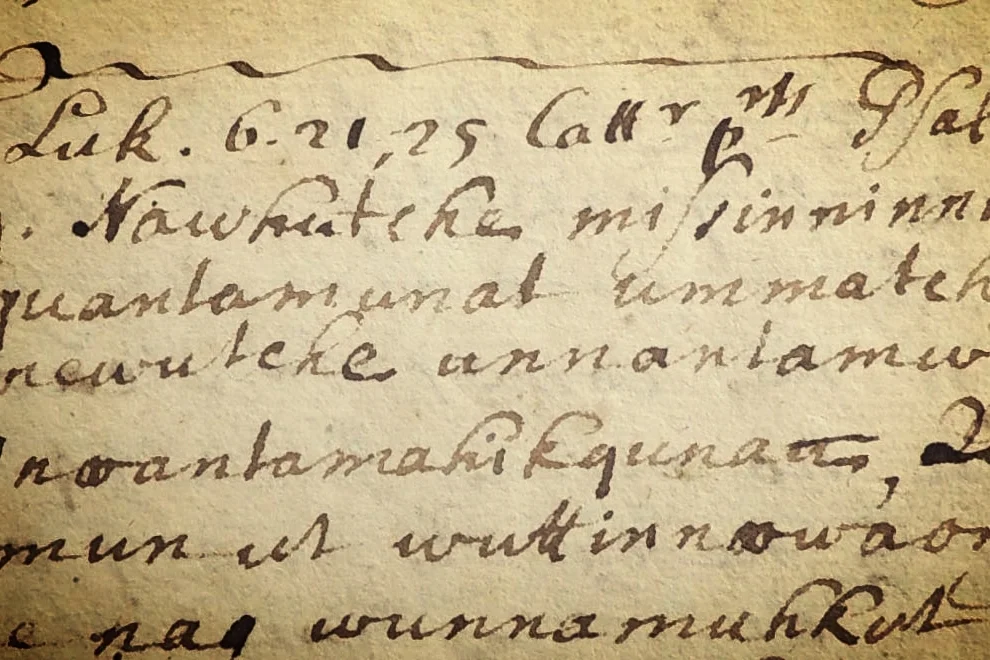 Luk. 6. 21, 25 Cattr prts Psal
. Nawhutche missinninn
quantamunat ummatch
newutche unnantamw
nꝏantamahikqunaū, 2
mun ut wuttinnꝏwaon
e naq wunnamuhkut